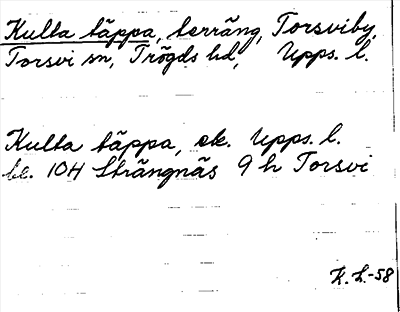 Kulla täppa, terräng, Torsviby,
Torsvi sn, Trögds hd, Upps. l.
Kulla täppa, ek. Upps. l.
bl. 10H Strängnäs 9 h Torsvi
K.L.-58